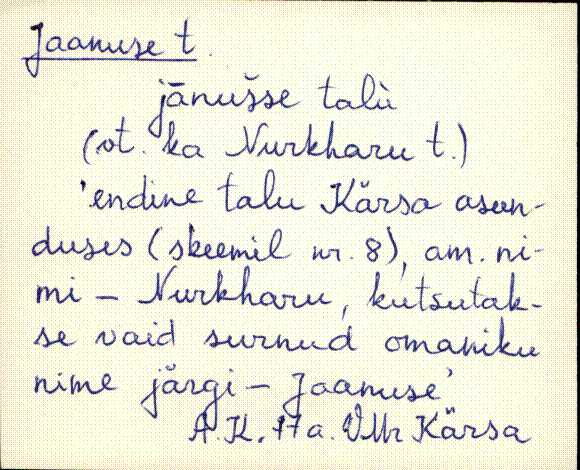 Jaanuse t.
jānušse talù
(vt. ka Nurkharu t.)
'endine talu Kärsa asun-
duses (skeemil nr. 8), am. ni-
mi – Nurkharu, kutsutak-
se vaid surnud omaniku
nime järgi – Jaanuse'
A. K. 77 a. VMr Kärsa